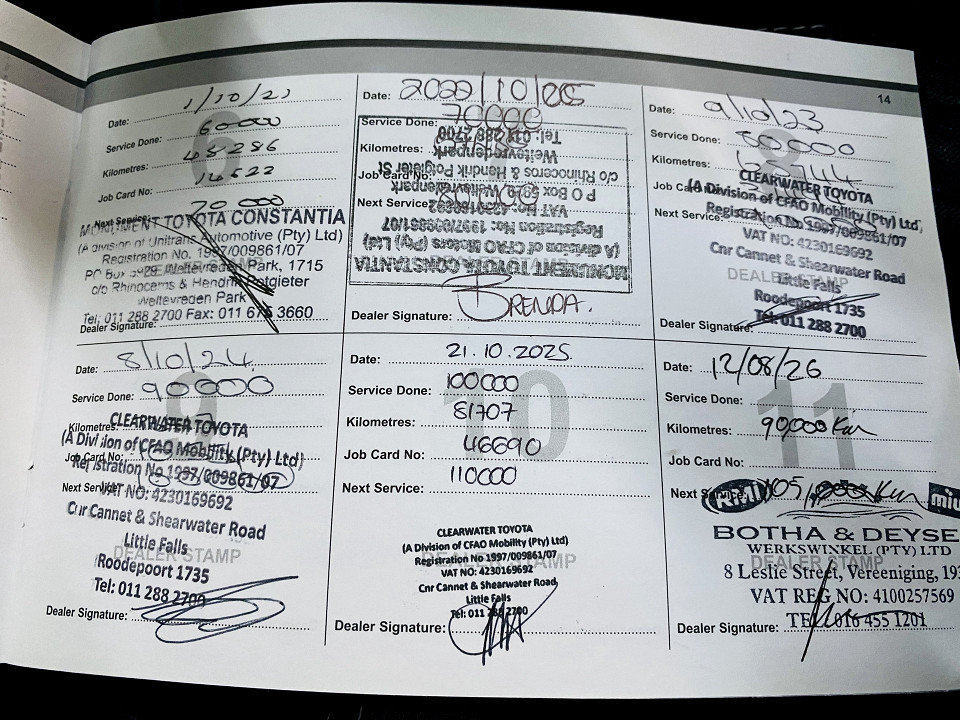 14
Date: 1/10/21
Service Done: 60000
Kilometres: 48286
Job Card No: 14622
Next Service: 70 000
MONUMENT TOYOTA CONSTANTIA
(A division of Unitrans Automotive (Pty) Ltd)
Registration No. 1997/009861/07
PO Box 5929 Weltevreden Park, 1715
c/o Rhinoceros & Hendrik Potgieter
Weltevreden Park
Tel: 011 288 2700 Fax: 011 675 3660
Dealer Signature:
Date: 2022/10/05
Service Done: 70000
Kilometres:
Job Card No:
Next Service:
MONUMENT TOYOTA CONSTANTIA
(A division of CFAO Motors (Pty) Ltd)
Registration No: 1997/009861/07
VAT No: 4230169692
P O Box 5929 Weltevredenpark
c/o Rhinoceros & Hendrik Potgieter St
Weltevredenpark
Tel: 011 288 2700
Dealer Signature: BRENDA.
8
Date: 9/10/23
Service Done: 80000
Kilometres:
Job Card No:
Next Service:
CLEARWATER TOYOTA
(A Division of CFAO Mobility (Pty) Ltd)
Registration No 1997/009861/07
VAT NO: 4230169692
Cnr Cannet & Shearwater Road
DEALER STAMP
Little Falls
Roodepoort 1735
Tel: 011 288 2700
Dealer Signature:
9
Date: 8/10/24
Service Done: 90000
Kilometres:
Job Card No:
Next Service:
CLEARWATER TOYOTA
(A Division of CFAO Mobility (Pty) Ltd)
Registration No 1997/009861/07
VAT NO: 4230169692
Cnr Cannet & Shearwater Road
Little Falls
DEALER STAMP
Roodepoort 1735
Tel: 011 288 2700
Dealer Signature:
10
Date: 21.10.2025
Service Done: 100000
Kilometres: 81707
Job Card No: 46690
Next Service: 110000
CLEARWATER TOYOTA
(A Division of CFAO Mobility (Pty) Ltd)
Registration No 1997/009861/07
DEALER STAMP
VAT NO: 4230169692
Cnr Cannet & Shearwater Road
Little Falls
Tel: 011 288 2700
Dealer Signature:
11
Date: 12/08/26
Service Done:
Kilometres: 90,000 Km
Job Card No:
Next Service: 105,000 Km
RMI
miw
BOTHA & DEYSE
WERKSWINKEL (PTY) LTD
DEALER STAMP
8 Leslie Street, Vereeniging, 193
VAT REG NO: 4100257569
TEL 016 455 1201
Dealer Signature: